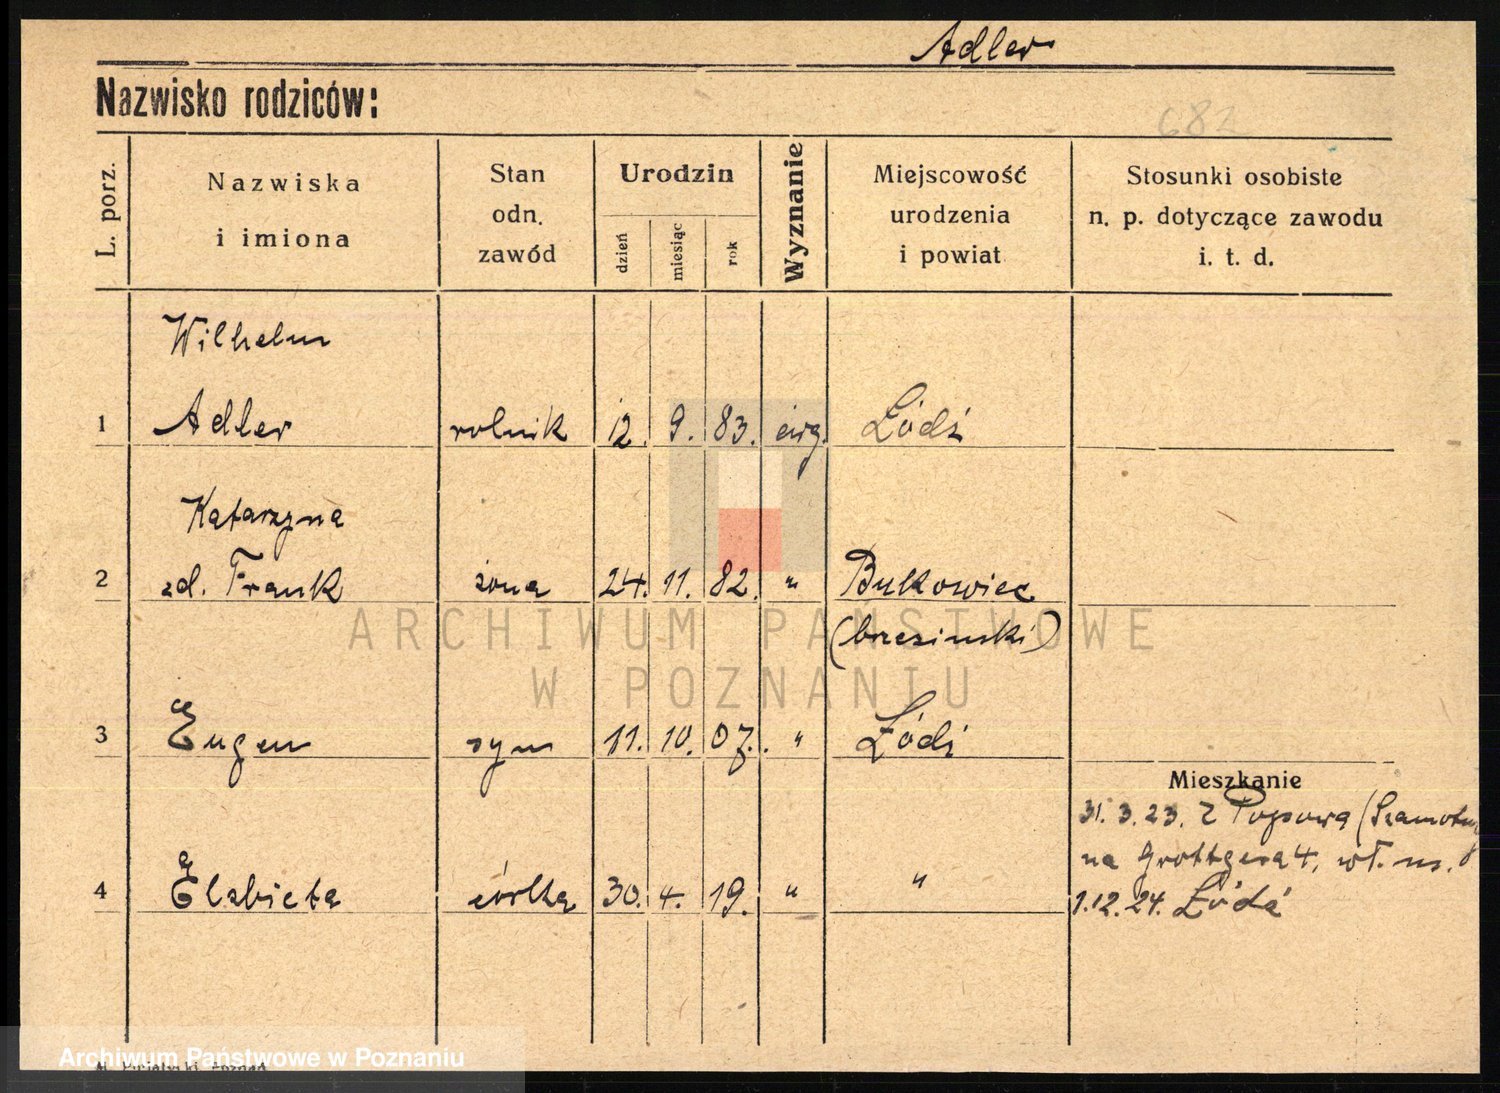 Adler
Nazwisko rodziców:
682
L. porz.
Nazwiska
i imiona
Stan
odn.
zawód
Urodzin
dzień
miesiąc
rok
Wyznanie
Miejscowość
urodzenia
i powiat
Stosunki osobiste
n. p. dotyczące zawodu
i. t. d.
Wilhelm
1 Adler rolnik 12. 9. 83. ewg. Łódź
Katarzyna
2 zd. Frank żona 24. 11. 82. " Bukowiec
(brzeziński)
ARCHIWUM PAŃSTWOWE
W POZNANIU
3 Eugen syn 11. 10. 07. " Łódź
Mieszkanie
31. 3. 23. z Popowa (Szamotuły
na Grottgera 4, wł. m.
4 Elżbieta córka 30. 4. 19. " "
1.12.24. Łódź
Archiwum Państwowe w Poznaniu